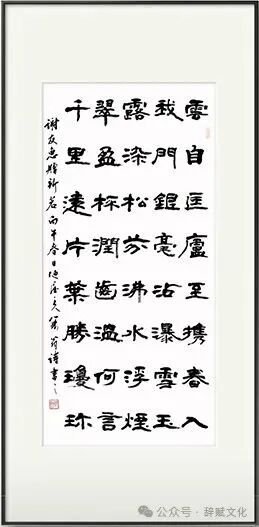 雲自匡廬至攜春入
我門銀毫沾瀑雪玉
露染松芬沸水浮煙
翠盈杯潤齒溫何言
千里遠片葉勝瓊珎
謝友惠贈新茗丙午春日翁詩書之
公众号 · 辞赋文化